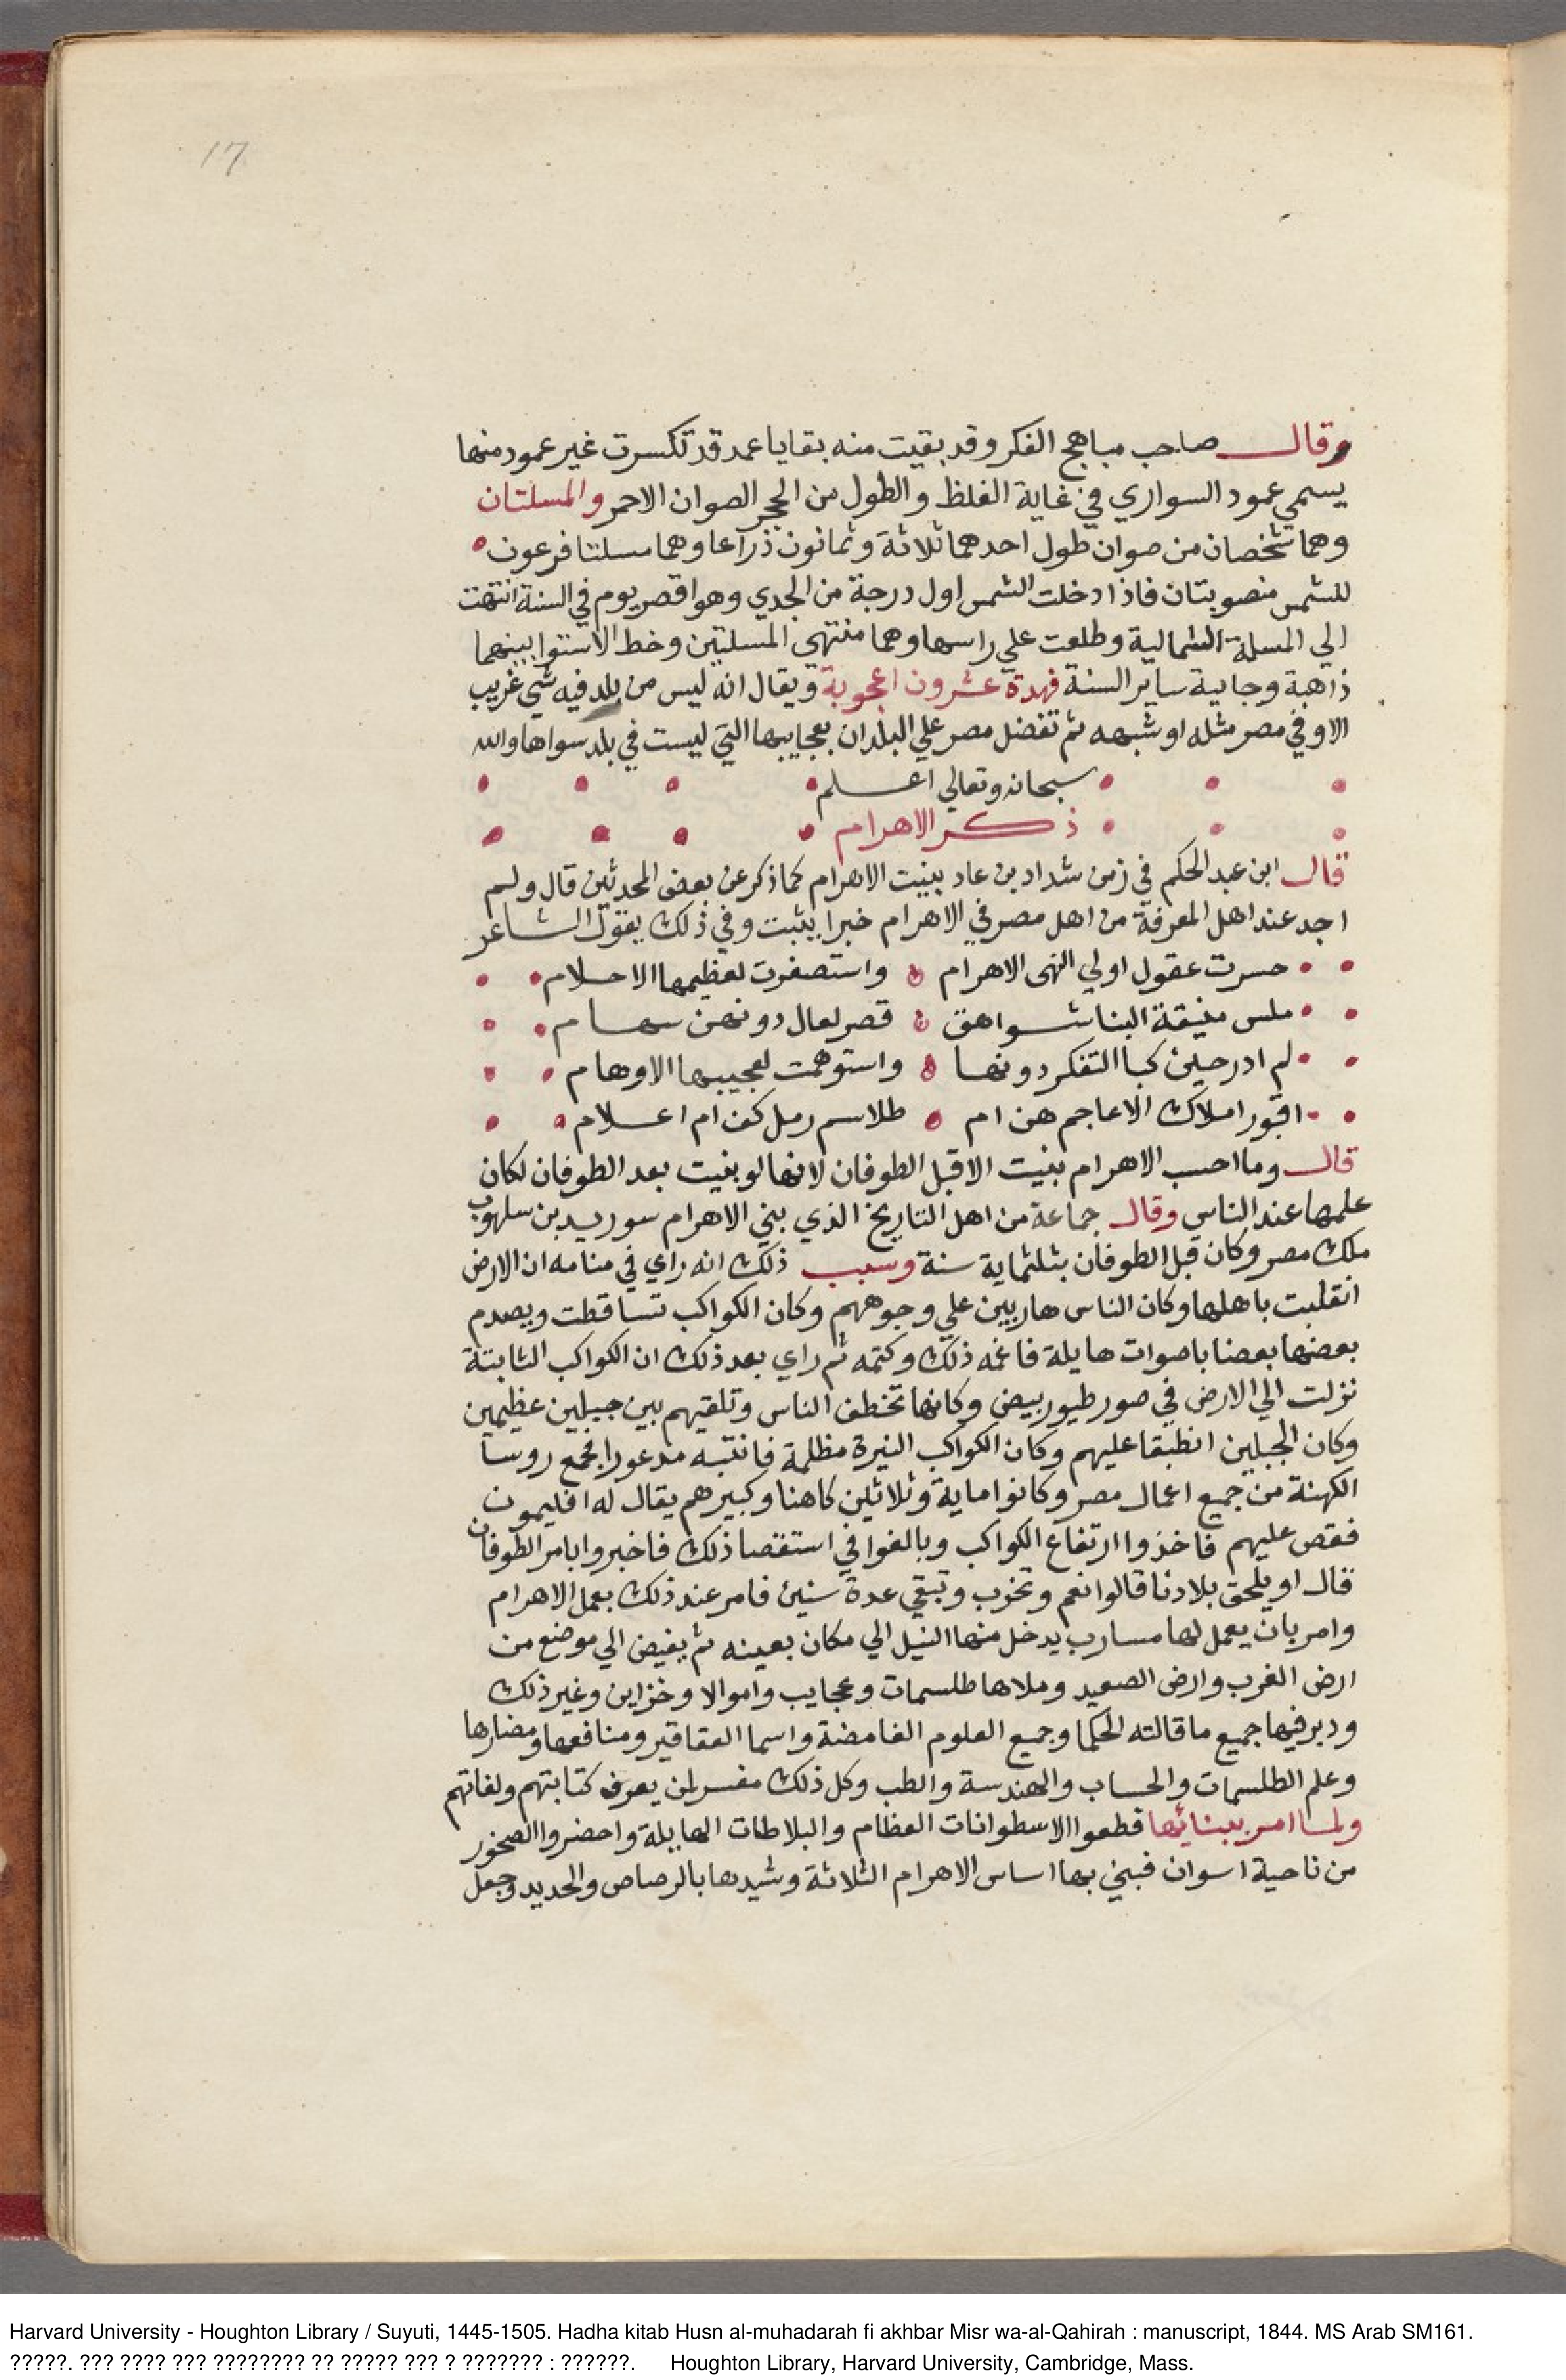 17
وقال صاحب مباهج الفكر وقد بقيت منه بقايا عمد قد تكسرت غير عمود منها
يسمي عمود السواري في غاية الغلظ والطول من الحجر الصوان الاحمر والمسلتان
وهما شخصان من صوان طول احدهما ثلاثة وثمانون ذراعا وهما مسلتا فرعون
للشمس منصوبتان فاذا دخلت الشمس اول درجة من الجدي وهو اقصر يوم في السنة انتهت
الي المسلة الشمالية وطلعت علي راسها وهما منتهي المسلتين وخط الاستوا بينهما
ذاهبة وجايية ساير السنة فهدة عشرون اعجوبة ويقال انه ليس من بلد فيه شي غريب
الا وفي مصر مثله او شبهه ثم تفضل مصر علي البلدان بعجايبها التي ليست في بلد سواها والله
سبحانه وتعالي اعلم
ذكر الاهرام
قال ابن عبد الحكم في زمن شداد بن عاد بنيت الاهرام كما ذكر عن بعض المحدثين قال ولم
اجد عند اهل المعرفة من اهل مصر في الاهرام خبرا يثبت وفي ذلك يقول الشاعر
حسرت عقول اولي النهى الاهرام واستصغرت لعظيمها الاحلام
ملس منيقة البنا شواهق قصر لعال دونهن سهام
لم ادر حين كبا التفكر دونها واستوهمت لعجيبها الاوهام
اقبور املاك الاعاجم هن ام طلاسم رمل كن ام اعلام
قال وما احسب الاهرام بنيت الا قبل الطوفان لانها لو بنيت بعد الطوفان لكان
علمها عند الناس وقال جماعة من اهل التاريخ الذي بني الاهرام سوريد بن سلهوب
ملك مصر وكان قبل الطوفان بثلثماية سنة وسبب ذلك انه راي في منامه ان الارض
انقلبت باهلها وكان الناس هاربين علي وجوههم وكان الكواكب تساقطت ويصدم
بعضها بعضا باصوات هايلة فاغمه ذلك وكتمه ثم راي بعد ذلك ان الكواكب الثابتة
نزلت الي الارض في صور طيور بيض وكانها تخطف الناس وتلقيهم بين جبلين عظيمين
وكان الجبلين انطبقا عليهم وكان الكواكب النيرة مظلمة فانتبه مدعورا فجمع روسا
الكهنة من جميع اعمال مصر وكانوا ماية وثلاثين كاهنا وكبيرهم يقال له افليمون
فقص عليهم فاخذوا ارتفاع الكواكب وبالغوا في استقصا ذلك فاخبروا بامر الطوفان
قال او يلحق بلادنا قالوا نعم وتخرب وتبقي عدة سنين فامر عند ذلك بعمل الاهرام
وامر بان يعمل لها مسارب يدخل منها النيل الي مكان بعينه ثم يفيض الي موضع من
ارض الغرب وارض الصعيد وملاها طلسمات وعجايب واموالا وخزاين وغير ذلك
ودبر فيها جميع ما قالته الحكما وجميع العلوم الغامضة واسما العقاقير ومنافعها ومضارها
وعلم الطلسمات والحساب والهندسة والطب وكل ذلك مفسر لمن يعرف كتابتهم ولغاتهم
ولما امر ببنائها قطعوا الاسطوانات العظام والبلاطات الهايلة واحضروا الصخور
من ناحية اسوان فبني بها اساس الاهرام الثلاثة وشيدها بالرصاص والحديد وجعل
Harvard University - Houghton Library / Suyuti, 1445-1505. Hadha kitab Husn al-muhadarah fi akhbar Misr wa-al-Qahirah : manuscript, 1844. MS Arab SM161.
?????. ??? ???? ??? ???????? ?? ????? ??? ? ??????? : ??????. Houghton Library, Harvard University, Cambridge, Mass.